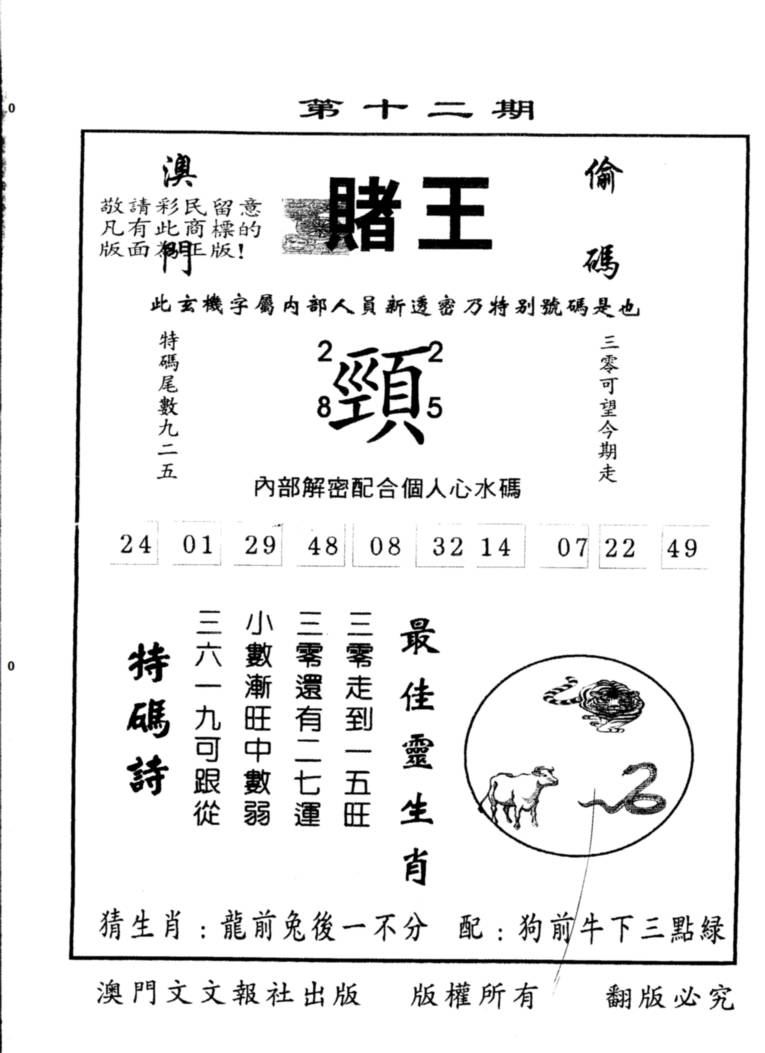 第十二期
澳門
敬請彩民留意
凡有此商標的
版面為正版!
賭王
偷碼
此玄機字屬內部人員新透密乃特别號碼是也
特碼尾數九二五
2 2
頸
8 5
三零可望今期走
內部解密配合個人心水碼
24 01 29 48 08 32 14 07 22 49
最佳靈生肖
三零走到一五旺
三零還有二七運
小數漸旺中數弱
三六一九可跟從
特碼詩
猜生肖:龍前兔後一不分 配:狗前牛下三點緑
澳門文文報社出版 版權所有 翻版必究
0
0